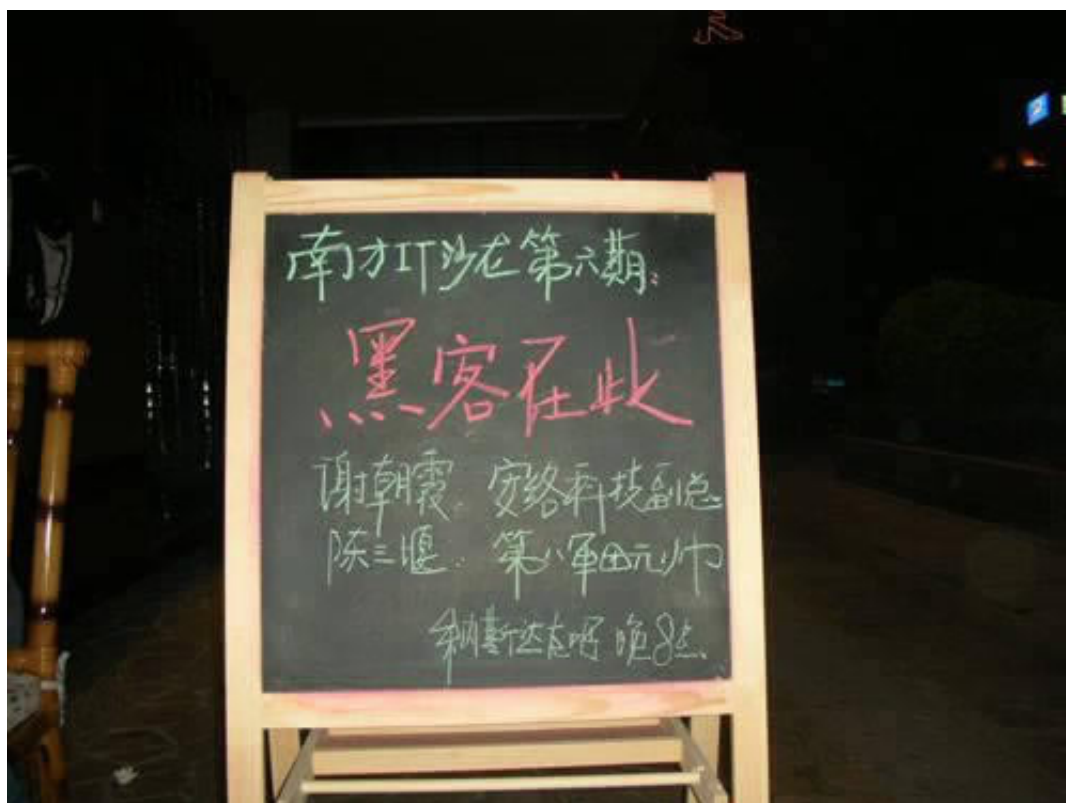 南方IT沙龙第六期:
黑客在此
谢朝霞. 安络科技副总
陈三堰. 第八军团元帅
斯达 晚8点
2